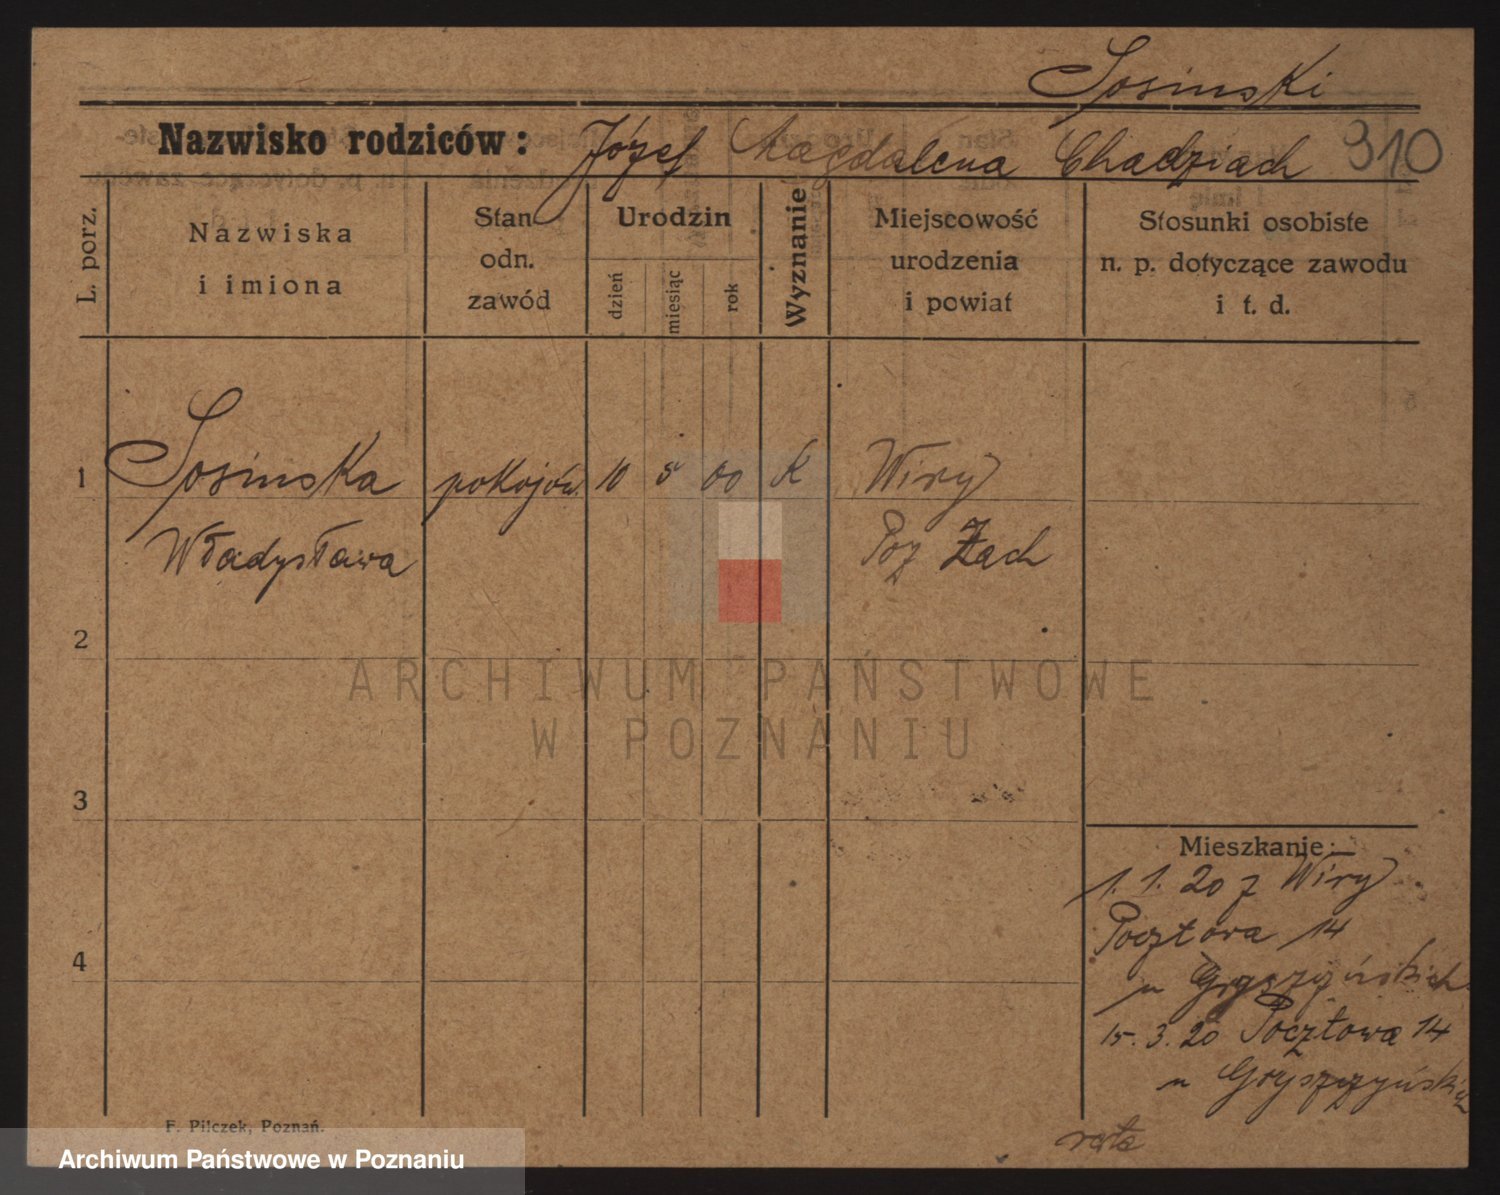 Sosinski
Nazwisko rodziców: Józef Magdalena Chadziach 310
L. porz.
Nazwiska
i imiona
Stan
odn.
zawód
Urodzin
dzień
miesiąc
rok
Wyznanie
Miejscowość
urodzenia
i powiat
Stosunki osobiste
n. p. dotyczące zawodu
i t. d.
1 Sosinska pokojów. 10 5 00 K Wiry
Władysława Poz Zach
2
ARCHIWUM PAŃSTWOWE
W POZNANIU
3
Mieszkanie:
1. 1. 20 z Wiry
Pocztowa 14
4
u Gryszczyńskich
15. 3. 20 Pocztowa 14
u Gryszczyńskich
F. Pilczek, Poznań.
Archiwum Państwowe w Poznaniu